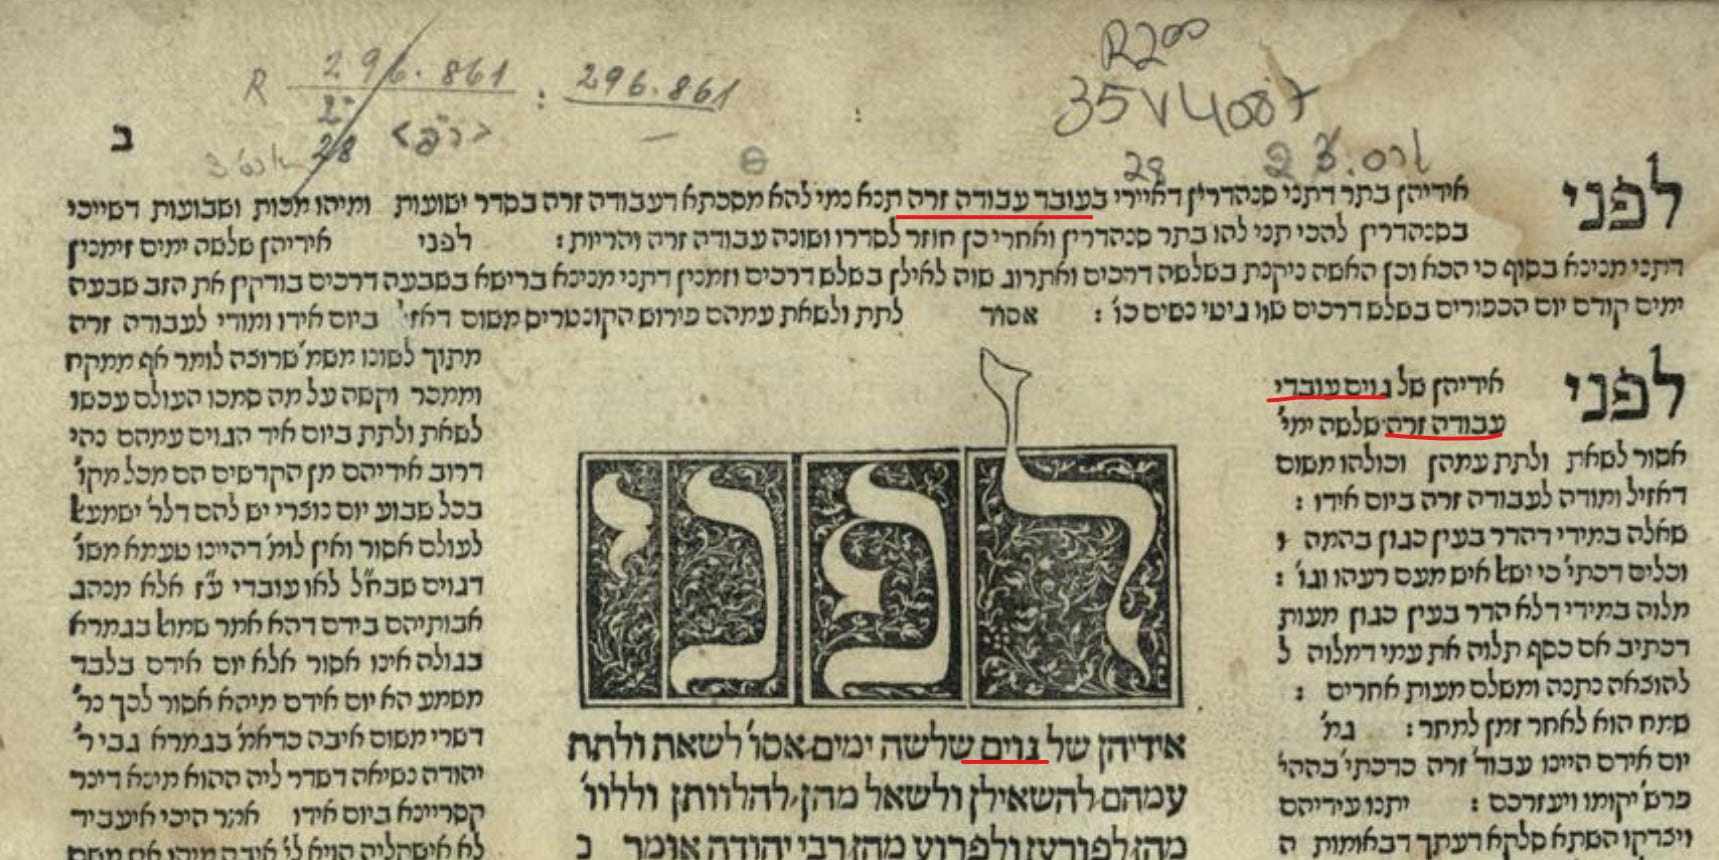 R 296.861 : 296.861
2°
28
<רפ>
R200
35V4087
28
ב
לפני אידיהן בתר דתני סנהדרין דאיירי בעובד עבודה זרה תנא נמי להא מסכתא דעבודה זרה בסדר ישועות ומיהו מכות ושבועות דשייכי
בסנהדרין להכי תני להו בתר סנהדרין ואחרי כן חוזר לסדרו ושונה עבודה זרה והריות : לפני אידיהן שלשה ימים זימנין
דתני מנינא בסוף כי הכא וכן האשה ניקנת בשלשה דרכים ואתרוג שוה לאילן בשלש דרכים וזמנין דתני מנינא ברישא בשבעה דרכים בודקין את הזב שבעה
ימים קודם יום הכפורים בשלש דרכים שוו גיטי נשים כו' : אסור לתת ולשאת עמהם פירוש הקונטרים משום דאזי' ביום אידו ומודי לעבודה זרה
לפני אידיהן של גוים עובדי
עבודה זרה שלשה ימי'
אסור לשאת ולתת עמהן וכולהו משום
דאזיל ומודה לעבודה זרה ביום אידו :
שאלה במידי דהדר בעין כגון בהמה ו
וכלים דכתי' כי ישאל איש מעם רעהו וגו' :
מלוה במידי דלא הדר בעין כגון מעות
דכתיב אם כסף תלוה את עמי דמלוה ל
להוצאה נתנה ומשלם מעות אחרים :
שמח הוא לאחר זמן למחר : גמ'
יום אידם היינו עבוד' זרה כדכתי' בההי'
פרש' יקומו ויעזרכם : יתנו עידיהם
ויצדקו השתא סלקא דעתך דבאומות ה
לפני
אידיהן של גוים שלשה ימים אסו' לשאת ולתת
עמהם להשאילן ולשאל מהן להלוותן וללוו'
מהן לפורען ולפרוע מהן רבי יהודה אומר נ
מתוך לשונו משמ' שרוצה לומר אף ממקח
וממכר וקשה על מה סמכו העולם עכשו
לשאת ולתת ביום איד הגוים עמהם נהי
דרוב אידיהם מן הקדשים הם מכל מקו'
בכל שבוע יום נוצרי יש להם דלר' ישמעאל
לעולם אסור ואין לומ' דהיינו טעמא משו'
דגוים שבח"ל לאו עובדי ע"ז אלא מנהג
אבותיהם בידם דהא אמר שמואל בגמרא
בגולה אינו אסור אלא יום אידם בלבד
משמע הא יום אידם מיהא אסור לכך נר'
דשרי משום איבה כדאמ' בגמרא גבי ר'
יהודה נשיאה דשדר ליה ההוא מינא דינר
קסריינא ביום אידו אמר היכי איעביד
לא אישקליה הויא לי' איבה מיהו אם משם